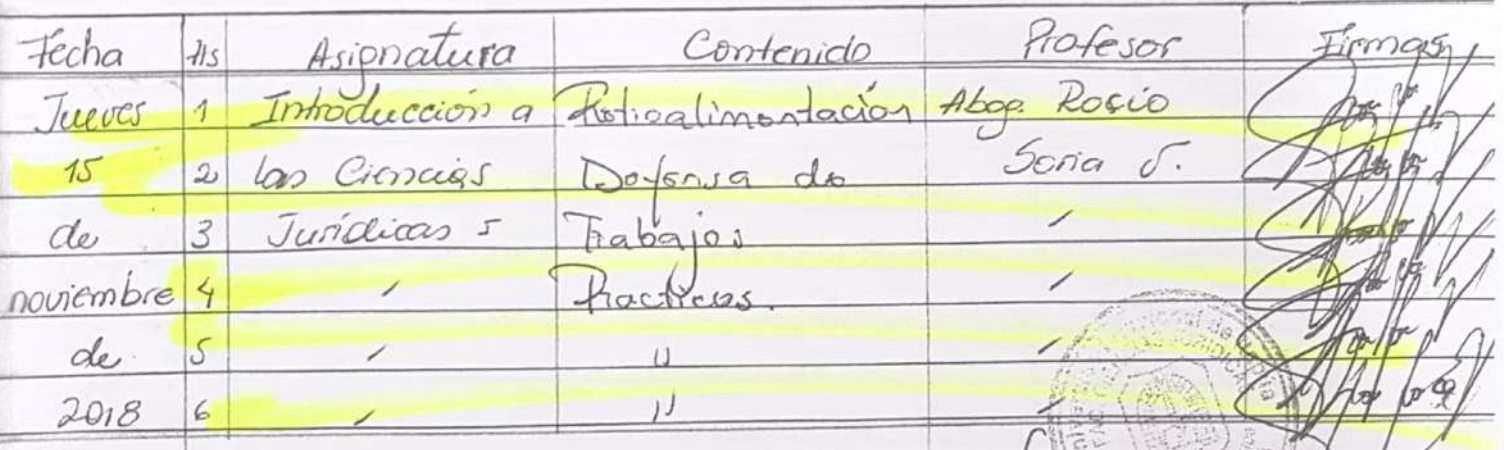 Fecha Hs Asignatura Contenido Profesor Firmas
Jueves 1 Introducción a Retioalimentación Abog. Rosio
15 2 las Ciencias Defensa de Soria S.
de 3 Jurídicas 5 Trabajos ′
noviembre 4 ′ Practicos. ′
de 5 ′ " ′
2018 6 ′ " ′